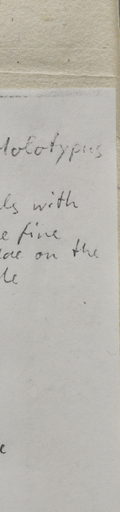 Holotypus
ls with
e fine
ae on the
le
e